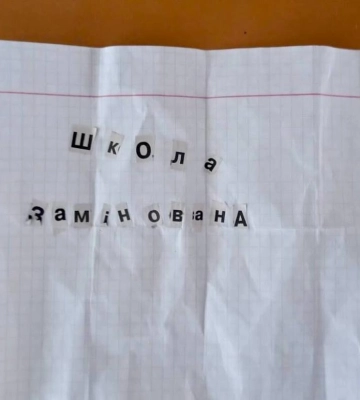 Школа
ЗамінованА